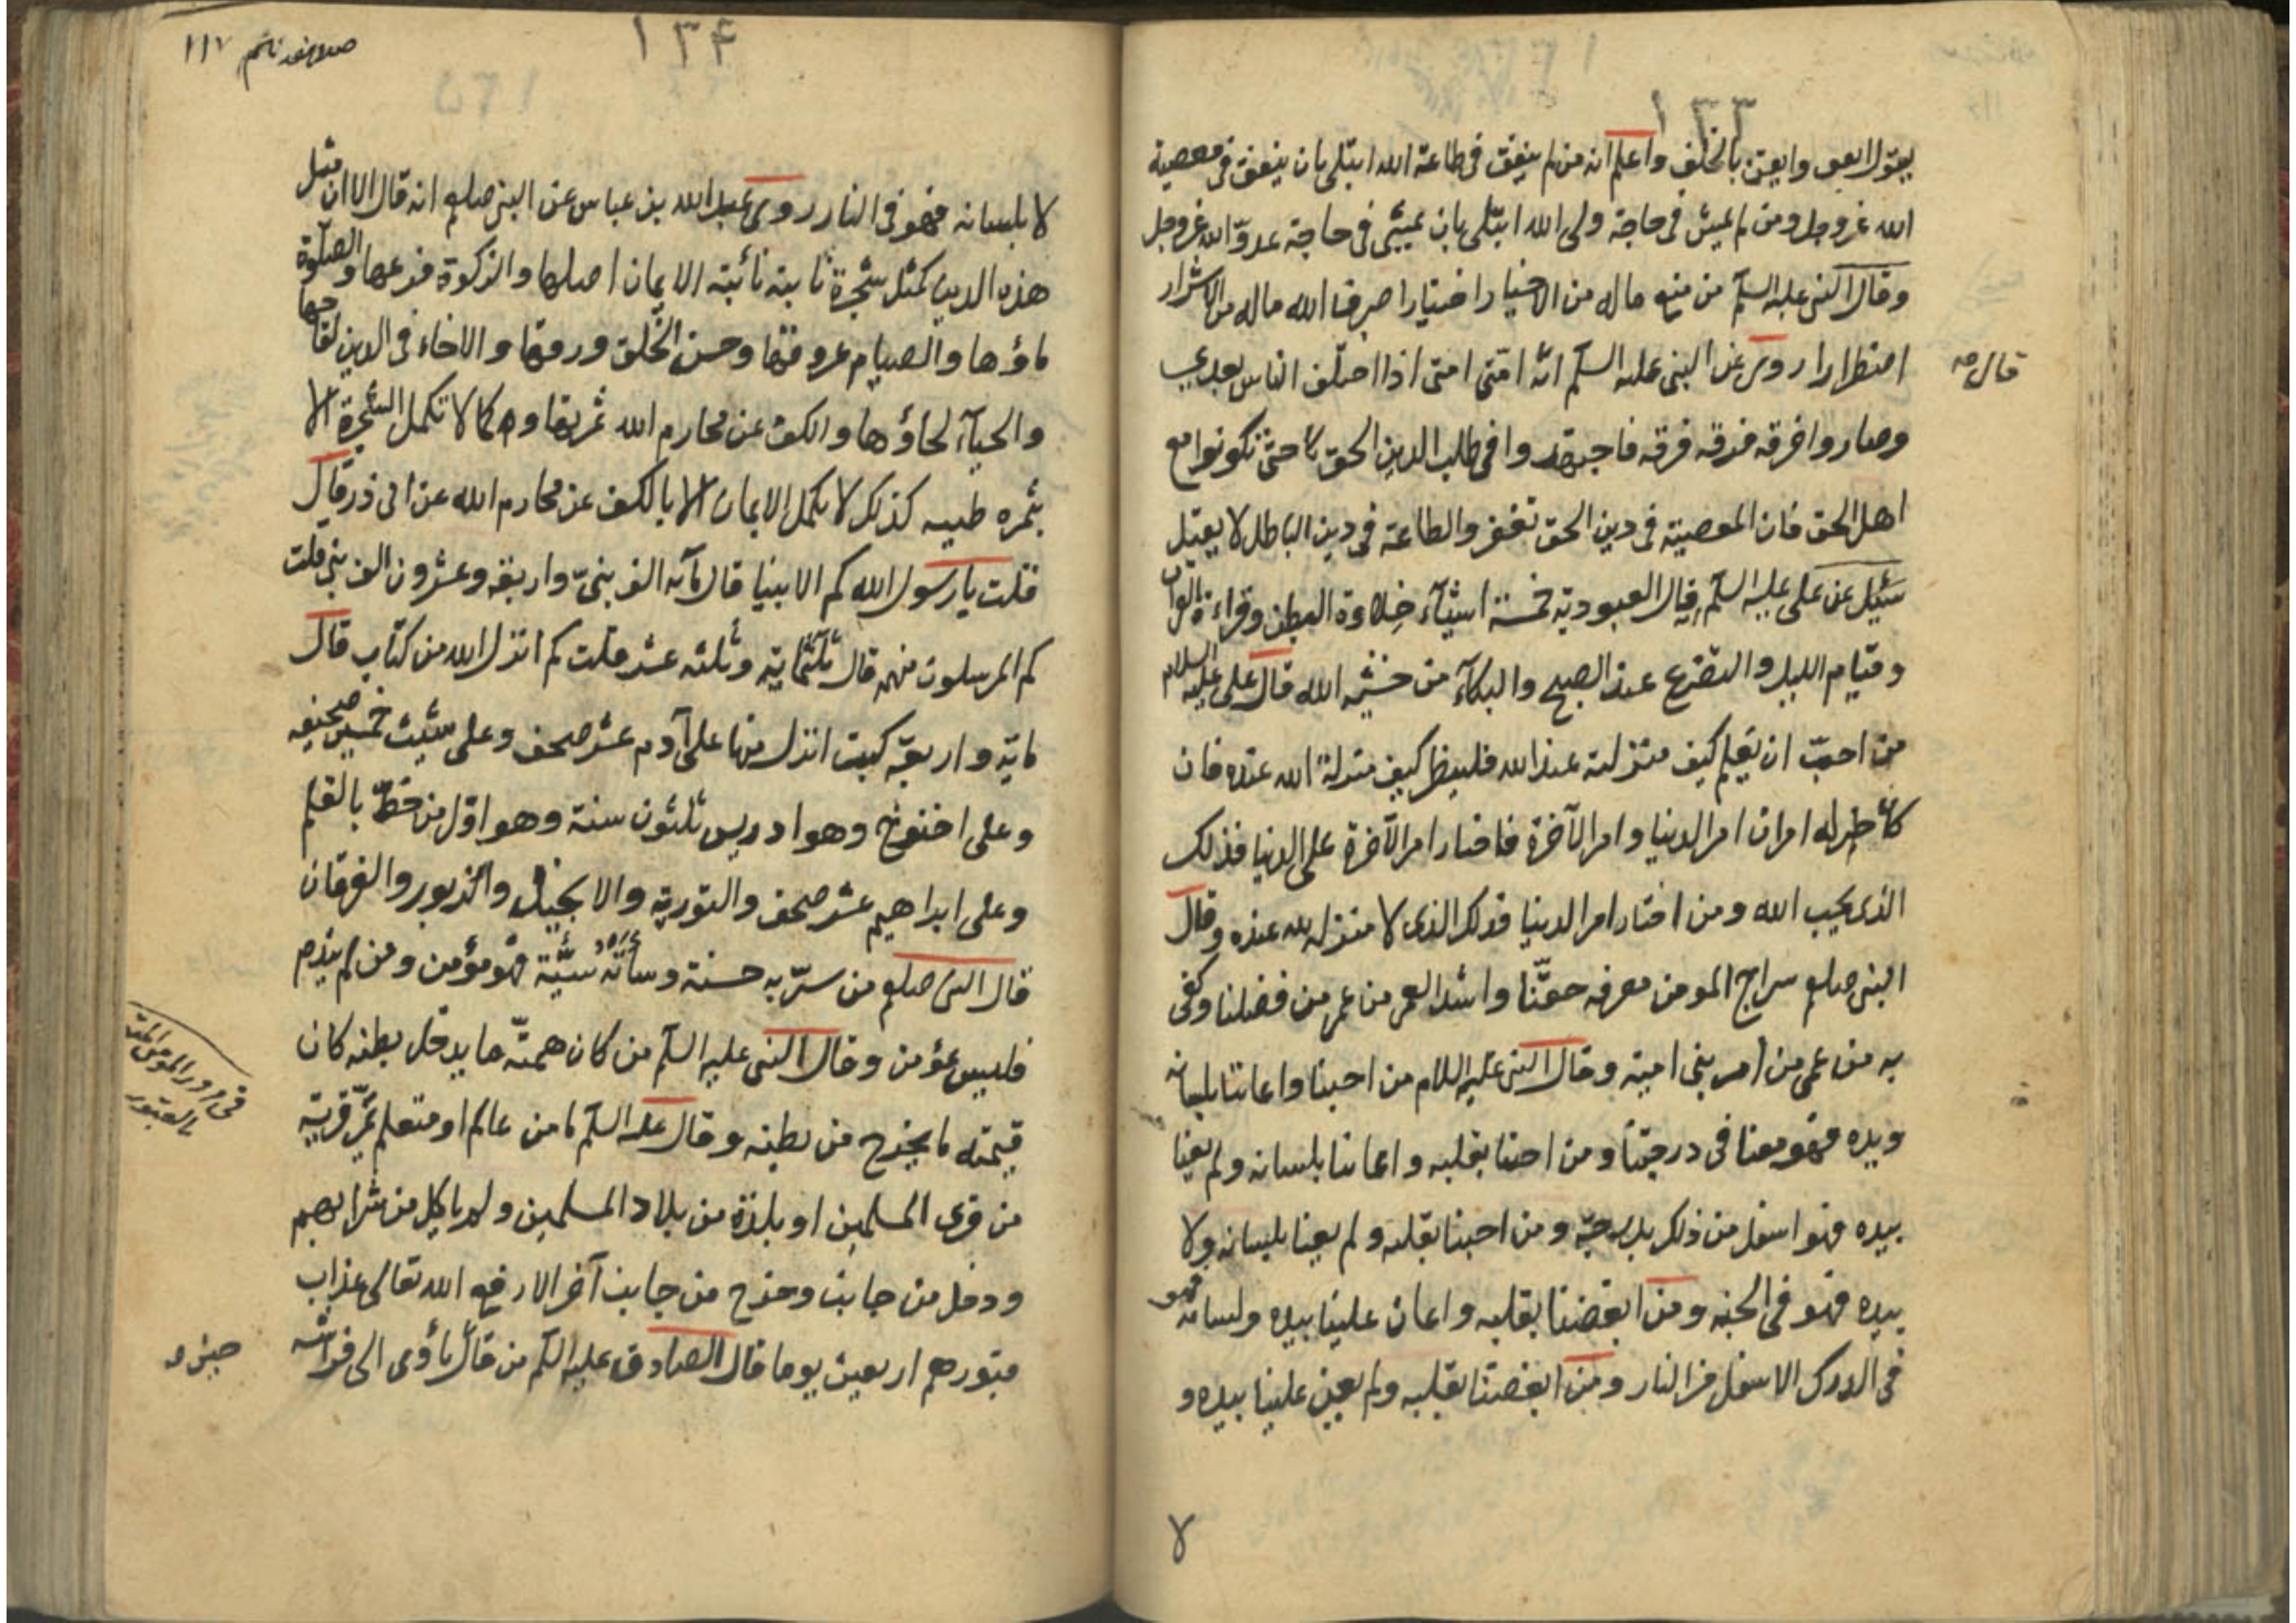 ١٣٣
يقول انفق وايقن بالخلف واعلم انه من لم ينفق فى طاعة الله ابتلى بان ينفق فى معصية
الله عز وجل ومن لم يمش فى حاجة ولى الله ابتلى بان يمشى فى حاجة عدوّ الله عز وجل
وقال النبى عليه السلم من منع ماله من الاخيار اختيارا صرف الله ماله من الاشرار
اضطرارا روى عن النبى عليه السلم انّه امتى امتى اذا اختلف الناس بعدى
قال
وصاروا فرقه فرقه فرقه فاجتهدوا فى طلب الدين الحق حتى تكونوا مع
اهل الحق فان المعصية فى دين الحق تغفر والطاعة فى دين الباطل لا يقبل
سئل عن على عليه السلم فقال العبودية خمسة اشياء خلاءة البطن وقراءة القران
وقيام الليل والتضرع عند الصبح والبكاء من خشية الله قال على عليه السلام
من احبّ ان يعلم كيف منزلته عند الله فلينظر كيف منزلة الله عنده فان
كل من خير له امران امر الدنيا وامر الآخرة فاختار امر الآخرة على الدنيا فذلك
الذى يحب الله ومن اختار امر الدنيا فذلك الذى لا منزله لله عنده وقال
النبى صلعم سراج المومن معرفه حقّنا واشد العمى من عمى من فضلنا وكفى
به من عمى من امر بنى امية وقال النبى عليه اللام من احبنا واعاننا بلسانه
ويده فهو معنا فى درجتنا ومن احبنا بقلبه واعاننا بلسانه ولم يعنا
بيده فهو اسفل من ذلك بدرجة ومن احبنا بقلبه ولم يعنا بلسانه ولا
بيده فهو فى الجنه ومن ابغضنا بقلبه واعان علينا بيده ولسانه فهو
فى الدرك الاسفل من النار ومن ابغضنا بقلبه ولم يعن علينا بيده و
١٣۴
١١٧
لا بلسانه فهو فى النار روى عبد الله بن عباس عن النبى صلعم انه قال الا ان مثل
هذه الدين كمثل شجرة ثابتة نائبته الايمان اصلها والزكوة فرعها والصلوة
ماؤها والصيام عروقها وحسن الخلق ورقها والاخاء فى الدين لقاحها
والحياء لحاؤها والكف عن محارم الله ثمرتها وكما لا تكمل الشجرة الا
بثمره طيبه كذلك لا يكمل الايمان الا بالكف عن محارم الله عن ابى ذر قال
قلت يا رسول الله كم الانبينا قال مآيه الف نبىّ واربعة وعشرون الف نبى قلت
كم المرسلون منهم قال ثلثمايه وثلثه عشر قلت كم انزل الله من كتاب قال
مايه واربعة كتب انزل منها على آدم عشر صحف وعلى شيث خمسين صحيفه
وعلى اخنوخ وهو ادريس ثلثون سنة وهو اوّل من خطّ بالقلم
وعلى ابراهيم عشر صحف والتورية والانجيل والزبور والفرقان
قال النبى صلعم من سرّ به حسنة وسأته سيّئة فهو مؤمن ومن لم يندم
فليس بمؤمن وقال النبى عليه السلم من كان همته ما يدخل بطنه كان
قيمته ما يخرج من بطنه وقال عليه السلم ما من عالم او متعلم يمرّ قرية
فى مرور المومن
بالقبور
من قرى المسلمين او بلدة من بلاد المسلمين ولم ياكل من شرابهم
ودخل من جانب وخرج من جانب آخر الا رفع الله تعالى عذاب
قبورهم اربعين يوما قال الصادق عليه السلم من قال يأوى الى فراشه
حين